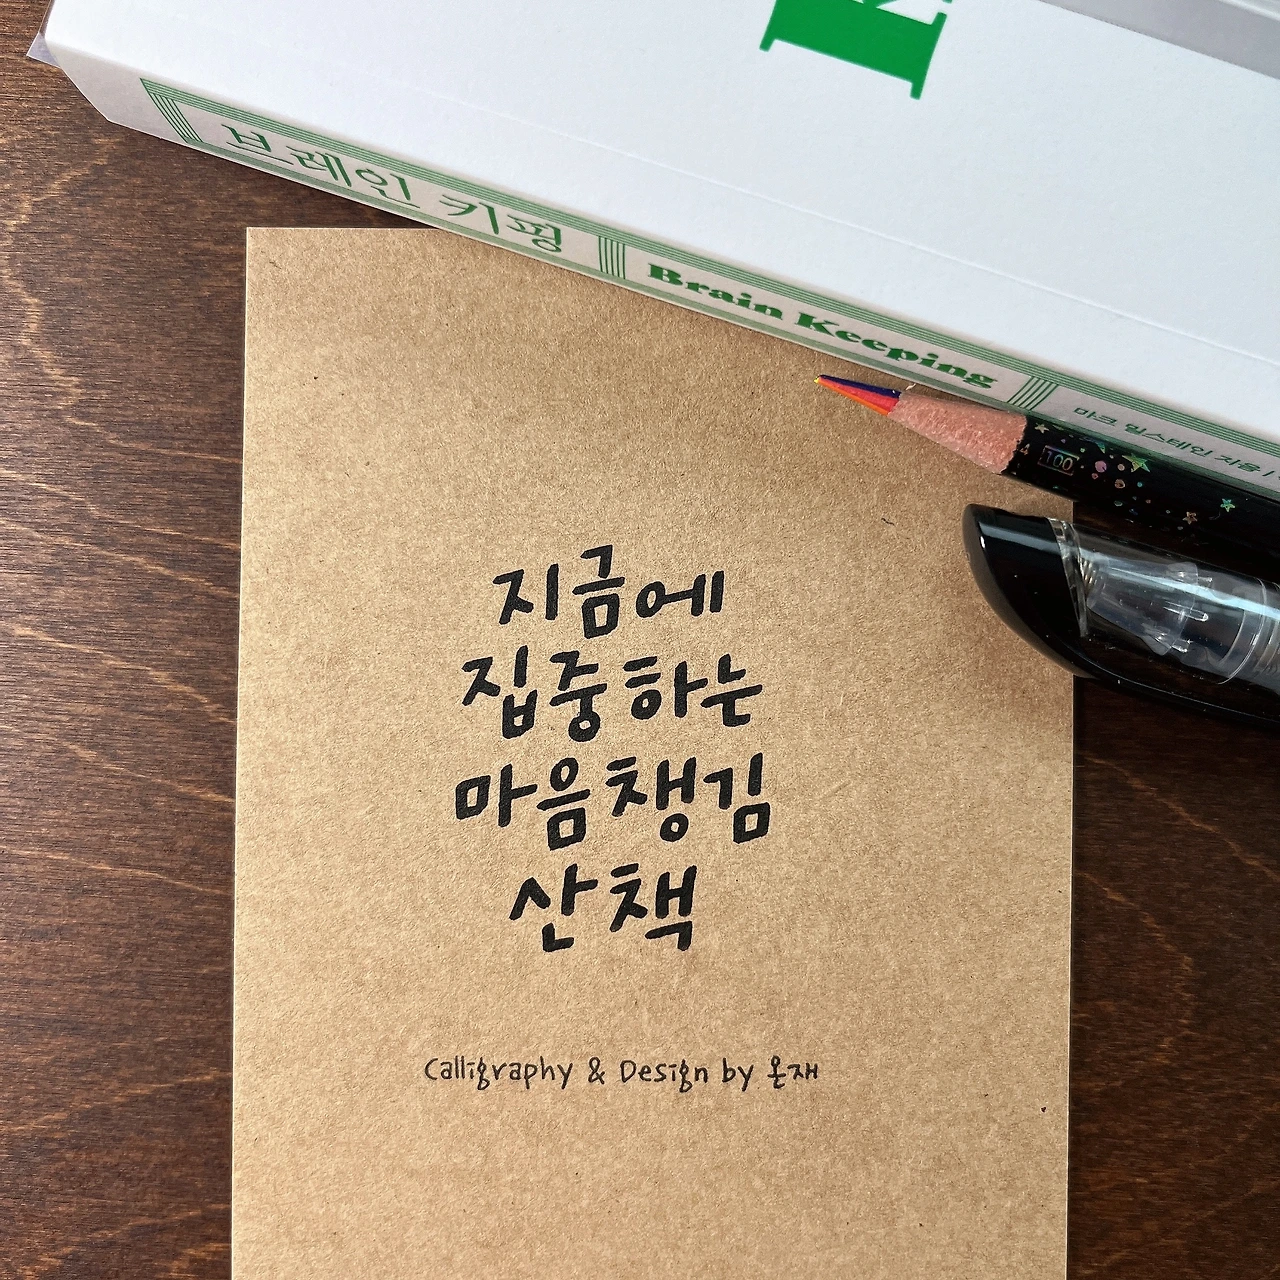 브레인 키핑 Brain Keeping 마크 밀스테인 지음
100
지금에
집중하는
마음챙김
산책
Calligraphy & Design by 온재